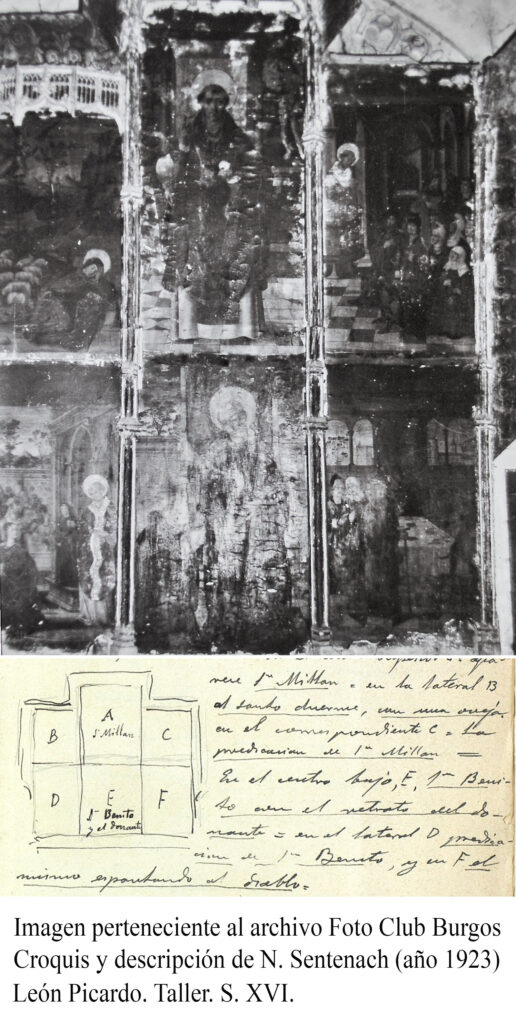 A
Sn Millan
B
C
D
E
Sn Benito
y el donante
F
rece Sn Millan = en la lateral B
el santo duerme, con una oveja
en el correspondiente C = La
predicacion de Sn Millan =
En el centro bajo, E, Sn Beni-
to con el retrato del do-
nante = en el lateral D predica-
cion de Sn Benito, y en F el
mismo espantando al diablo =
Imagen perteneciente al archivo Foto Club Burgos
Croquis y descripción de N. Sentenach (año 1923)
León Picardo. Taller. S. XVI.